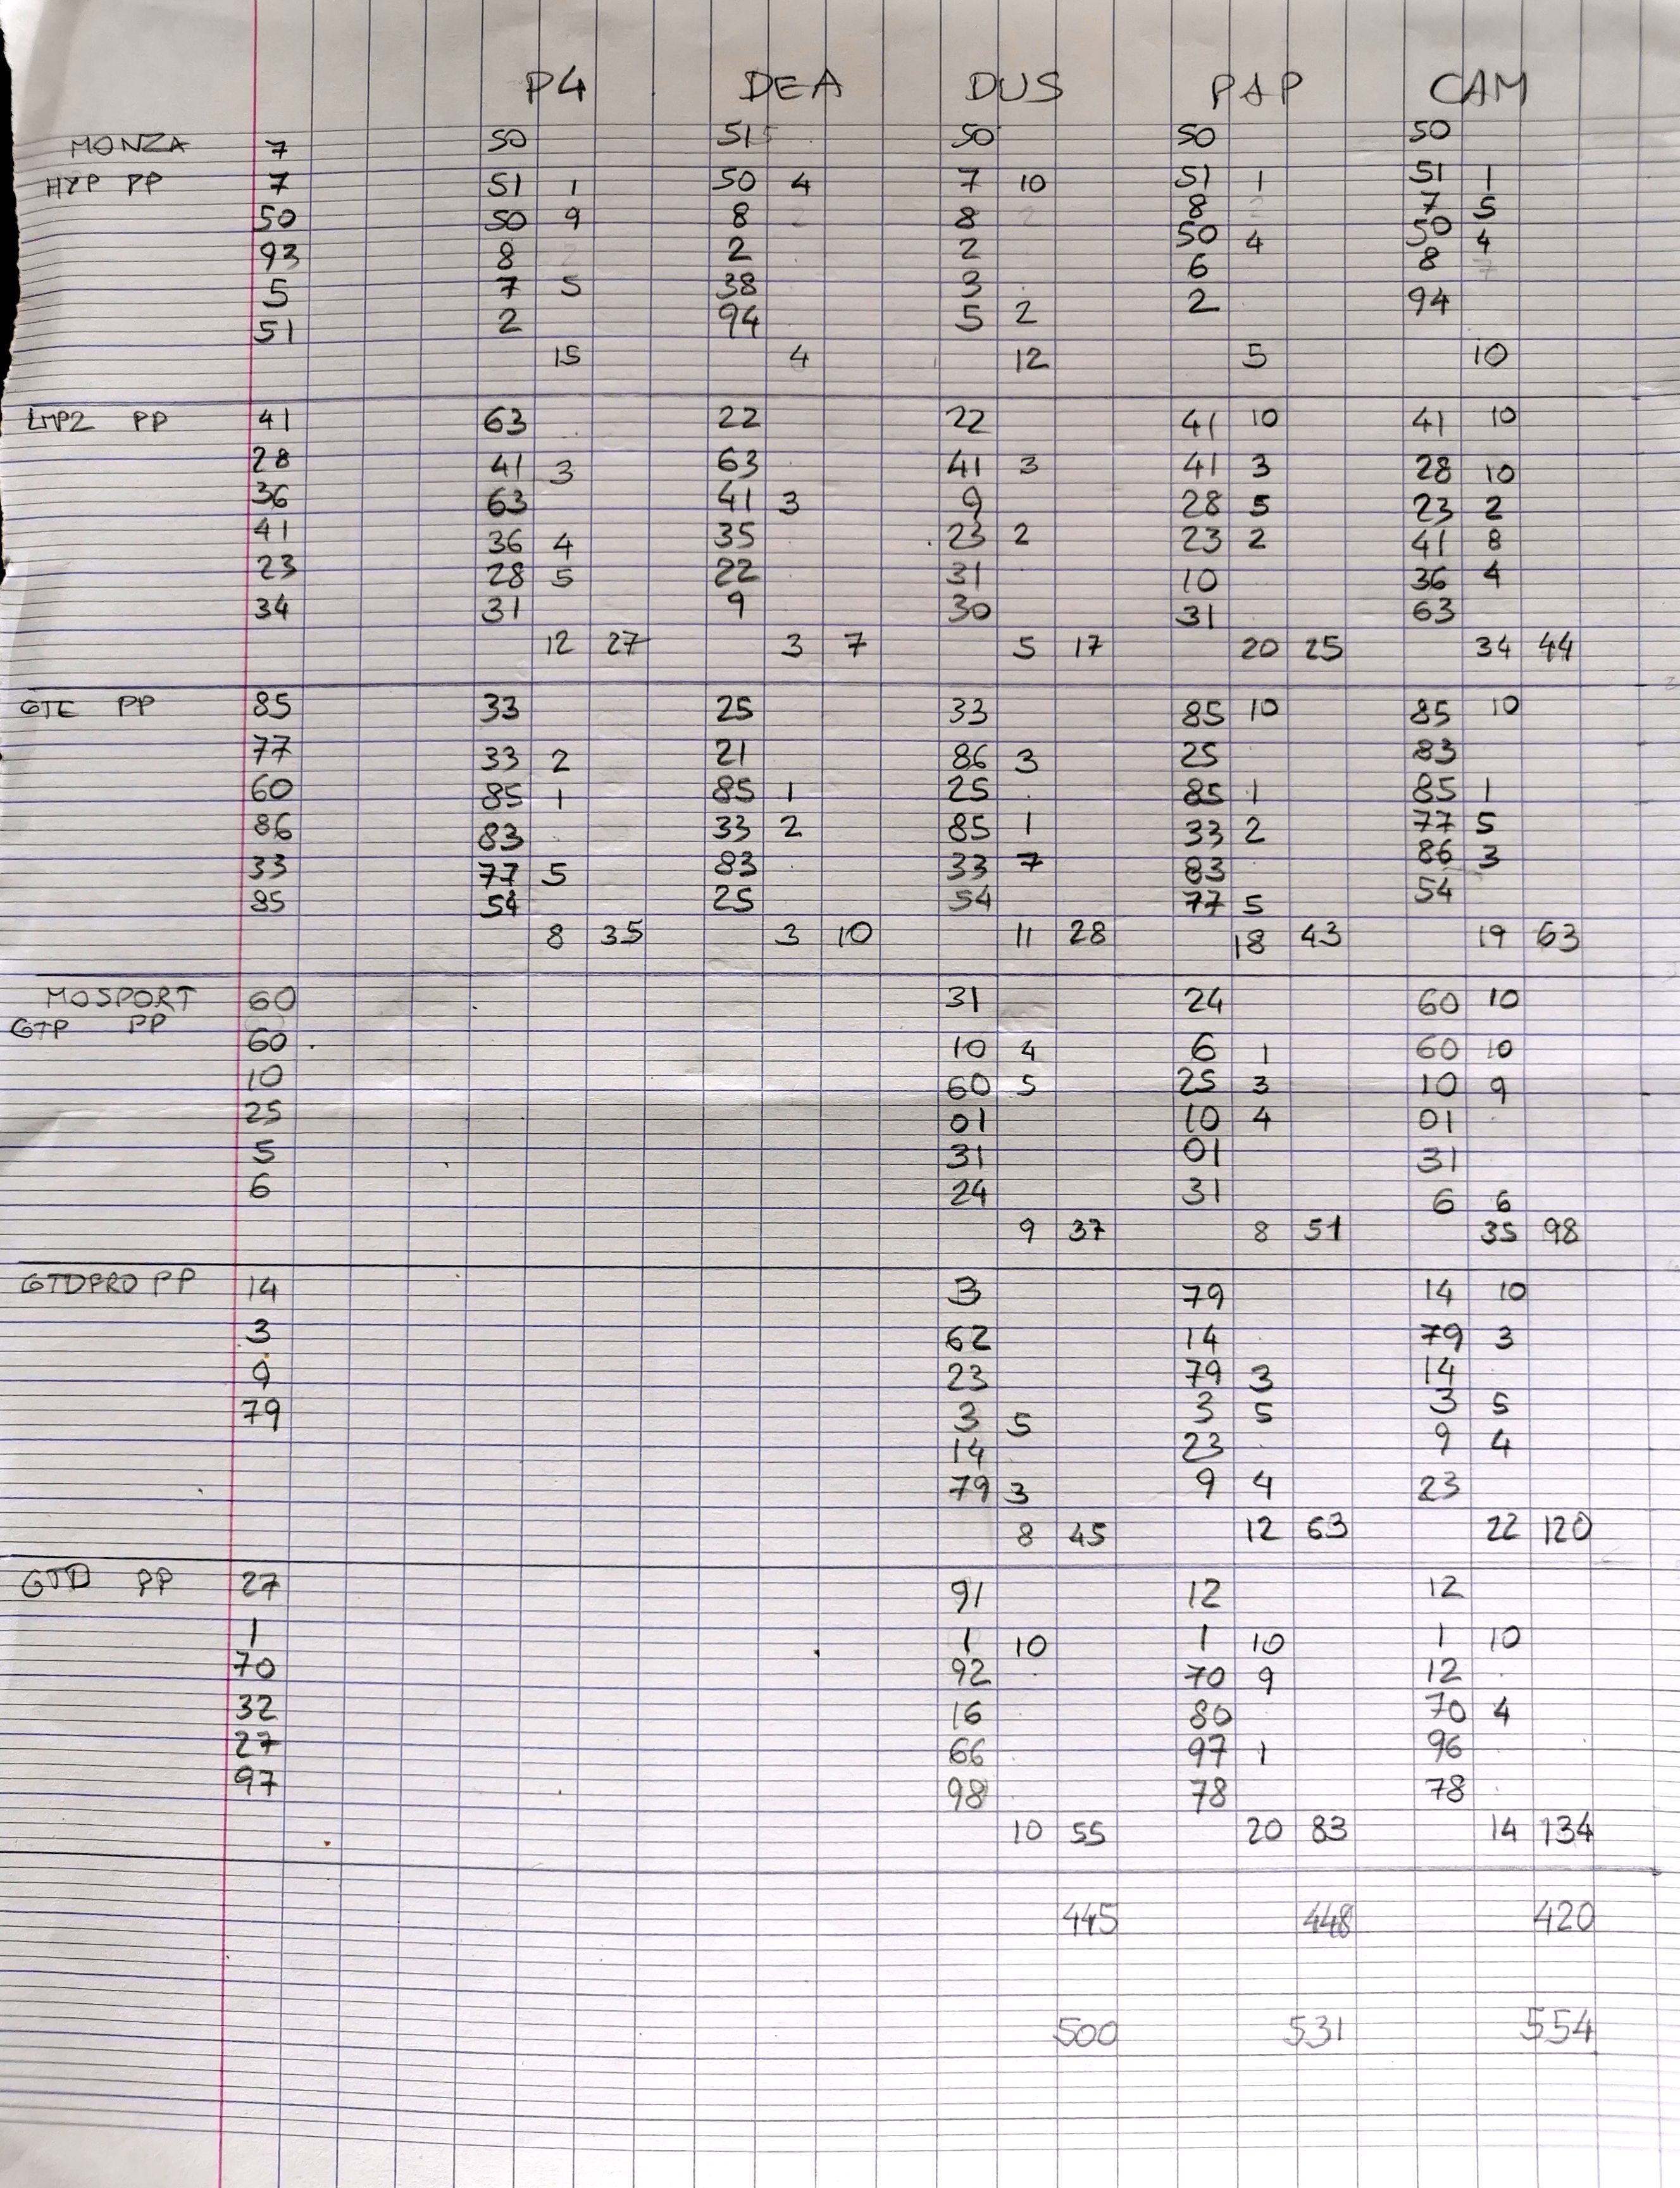 P4 DEA DUS PAP CAM
MONZA 7 50 51 50 50 50
HYP PP 7 51 1 50 4 7 10 51 1 51 1
50 50 9 8 8 8 7 5
93 8 2 2 50 4 50 4
5 7 5 38 3 6 8
51 2 94 5 2 2 94
15 4 12 5 10
LMP2 PP 41 63 22 22 41 10 41 10
28 41 3 63 41 3 41 3 28 10
36 63 41 3 9 28 5 23 2
41 36 4 35 23 2 23 2 41 8
23 28 5 22 31 10 36 4
34 31 9 30 31 63
12 27 3 7 5 17 20 25 34 44
GTE PP 85 33 25 33 85 10 85 10
77 33 2 21 86 3 25 83
60 85 1 85 1 25 85 1 85 1
86 83 33 2 85 1 33 2 77 5
33 77 5 83 33 7 83 86 3
85 54 25 54 77 5 54
8 35 3 10 11 28 18 43 19 63
MOSPORT 60 31 24 60 10
GTP PP
60 10 4 6 1 60 10
10 60 5 25 3 10 9
25 01 10 4 01
5 31 01 31
6 24 31 6 6
9 37 8 51 35 98
GTDPRO PP 14 3 79 14 10
3 62 14 79 3
9 23 79 3 14
79 3 5 3 5 3 5
14 23 9 4
79 3 9 4 23
8 45 12 63 22 120
GTD PP 27 91 12 12
1 1 10 1 10 1 10
70 92 70 9 12
32 16 80 70 4
27 66 97 1 96
97 98 78 78
10 55 20 83 14 134
445 448 420
500 531 554